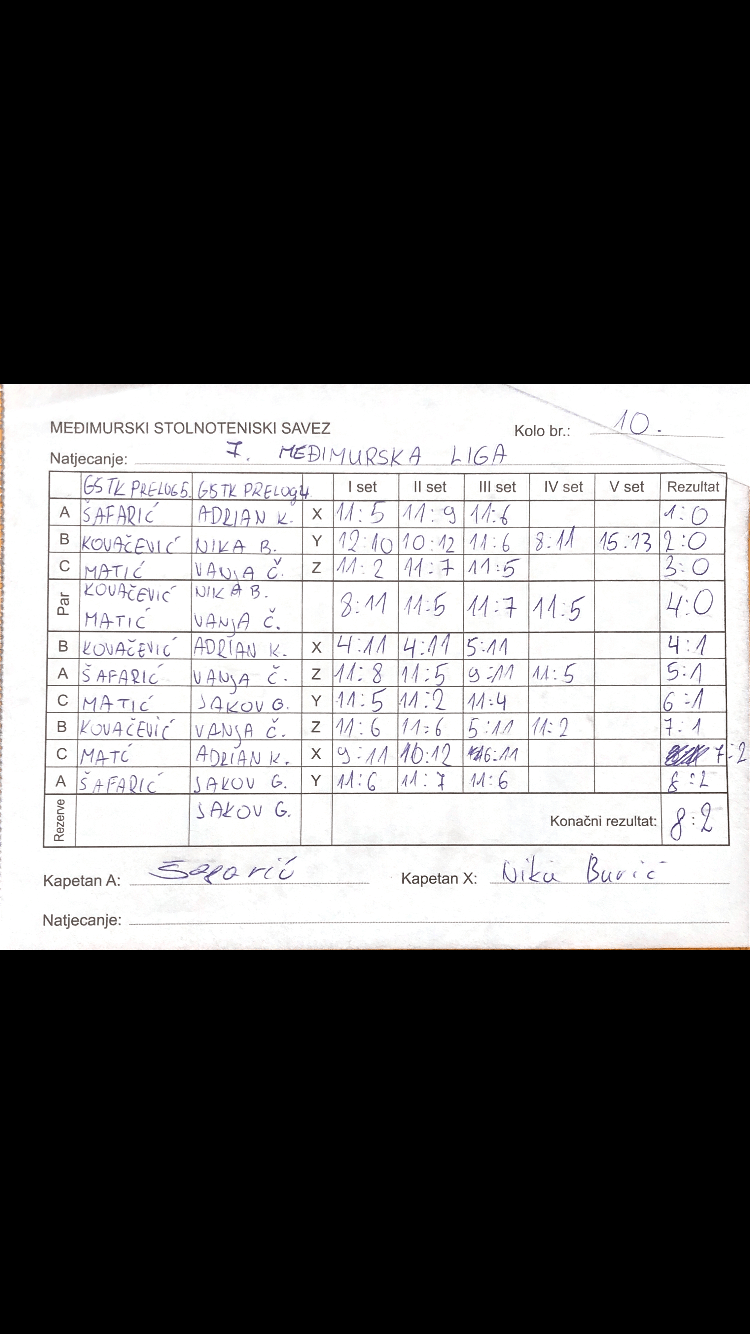 MEĐIMURSKI STOLNOTENISKI SAVEZ
Kolo br.: 10.
Natjecanje: 7. MEĐIMURSKA LIGA
GSTK PRELOG 5. GSTK PRELOG 4 I set II set III set IV set V set Rezultat
A ŠAFARIĆ ADRIAN K. X 11:5 11:9 11:6 1:0
B KOVAČEVIĆ NIKA B. Y 12:10 10:12 11:6 8:11 15:13 2:0
C MATIĆ VANJA Č. Z 11:2 11:7 11:5 3:0
Par KOVAČEVIĆ NIKA B. 8:11 11:5 11:7 11:5 4:0
MATIĆ VANJA Č.
B KOVAČEVIĆ ADRIAN K. X 4:11 4:11 5:11 4:1
A ŠAFARIĆ VANJA Č. Z 11:8 11:5 9:11 11:5 5:1
C MATIĆ JAKOV G. Y 11:5 11:2 11:4 6:1
B KOVAČEVIĆ VANJA Č. Z 11:6 11:6 5:11 11:2 7:1
C MATĆ ADRIAN K. X 9:11 10:12 6:11 7:2
A ŠAFARIĆ JAKOV G. Y 11:6 11:7 11:6 8:2
Rezerve JAKOV G. Konačni rezultat: 8:2
Kapetan A: Šafarić Kapetan X: Nika Burić
Natjecanje: